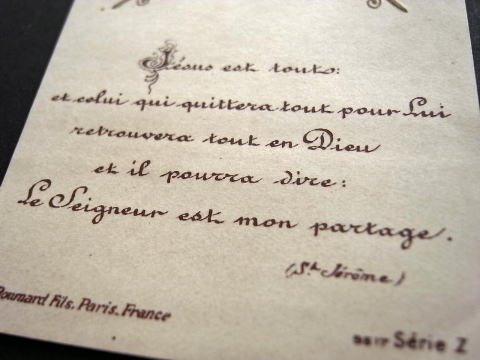 Jésus est tout:
et celui qui quittera tout pour Lui
retrouvera tout en Dieu
et il pourra dire:
Le Seigneur est mon partage.
(St Jérôme)
Boumard Fils, Paris, France
Série Z